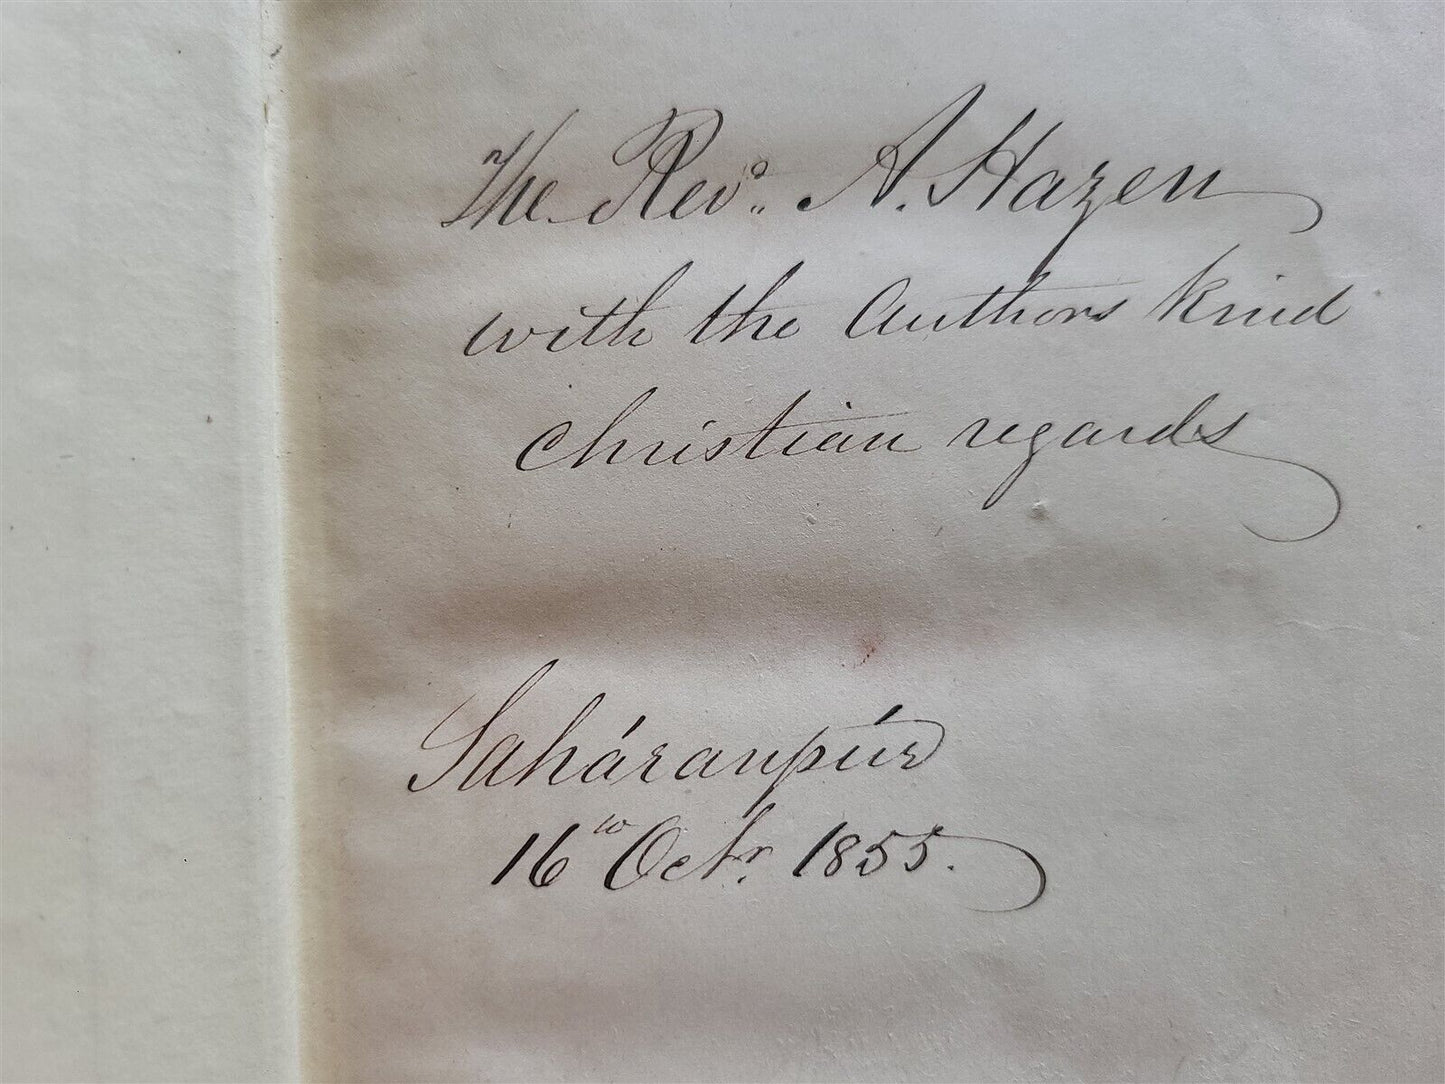 The Revd. A. Hazen
with the Authors kind
christian regards
Saháranpúr
16th Octr. 1855.